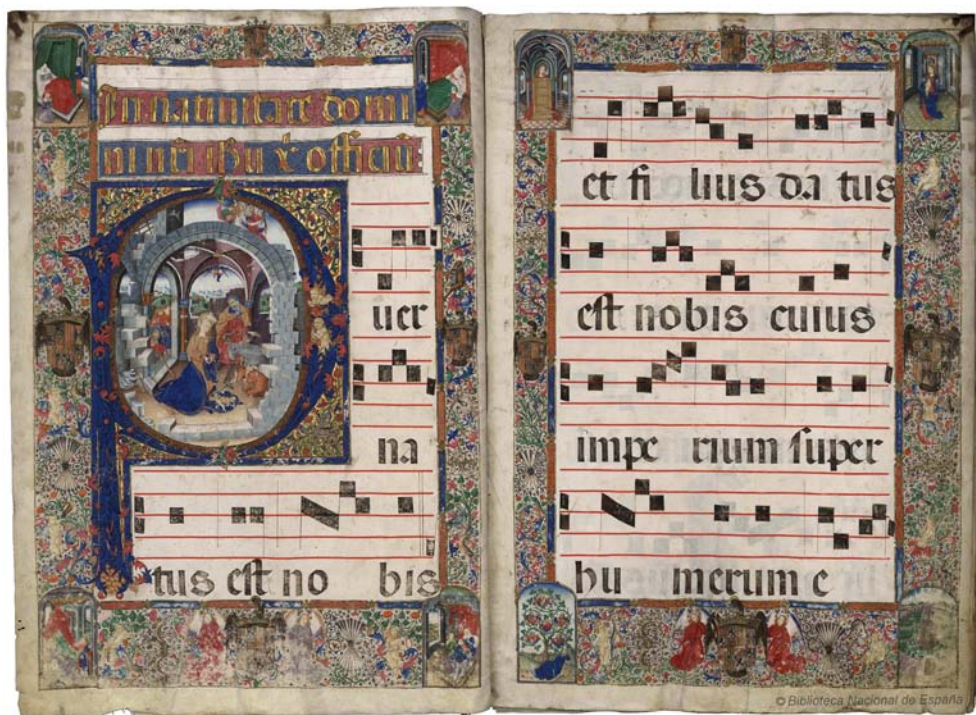 In natiuitate domi
ni nri ihu xc officiu
P
uer
na
tus est no bis
et fi lius da tus
est nobis cuius
impe rium super
hu merum e
© Biblioteca Nacional de España